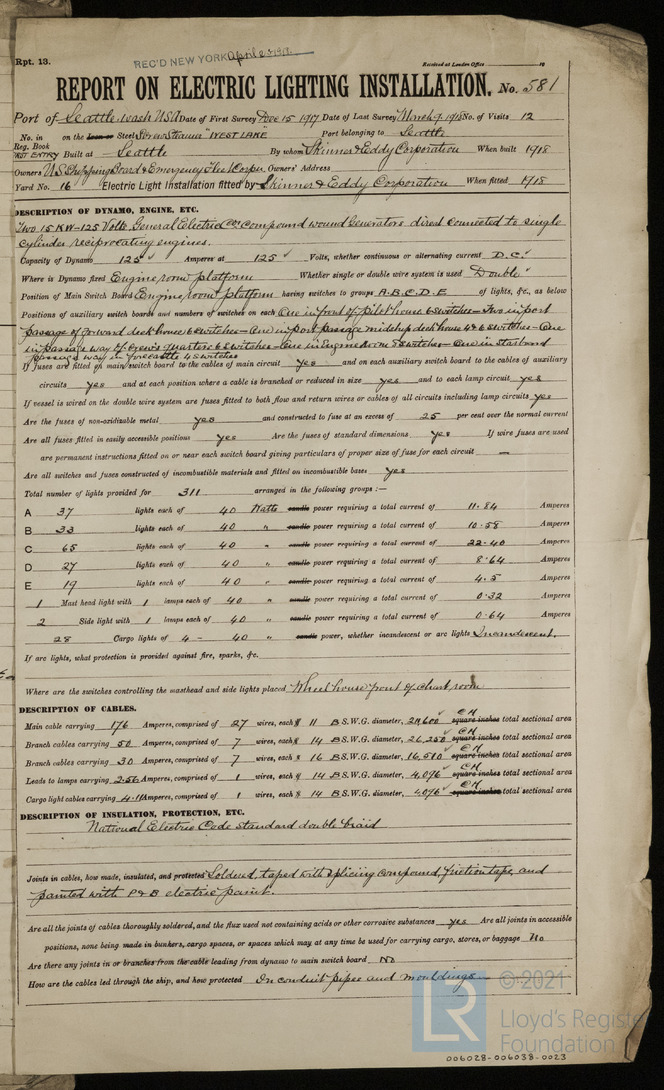 Rpt. 13.
REC'D NEW YORK April 2 1918
Received at London Office
REPORT ON ELECTRIC LIGHTING INSTALLATION. No. 581
Port of Seattle Wash USA Date of First Survey Dec 15 1917 Date of Last Survey March 9 1918 No. of Visits 12
No. in on the Iron or Steel Screw Steamer "WEST LAKE" Port belonging to Seattle
Reg. Book
NOT ENTRY Built at Seattle By whom Skinner & Eddy Corporation When built 1918
Owners U.S. Shipping Board & Emergency Fleet Corpn Owners' Address
Yard No. 16 Electric Light Installation fitted by Skinner & Eddy Corporation When fitted 1918
DESCRIPTION OF DYNAMO, ENGINE, ETC.
Two 15 KW-125 Volts General Electric Co. Compound wound Generators direct connected to single
cylinder reciprocating engines.
Capacity of Dynamo 125 Amperes at 125 Volts, whether continuous or alternating current D.C.
Where is Dynamo fixed Engine room platform Whether single or double wire system is used Double
Position of Main Switch Board Engine room platform having switches to groups A.B.C.D.E of lights, &c., as below
Positions of auxiliary switch boards and numbers of switches on each One in front of pilot house 6 switches - Two in port
passage of forward deck house 6 switches - One in port passage midship deck house 4 & 6 switches - One
in passage way of crew's quarters 6 switches - One in Engine room 5 switches - One in starboard
passage way in forecastle 4 switches
If fuses are fitted on main switch board to the cables of main circuit yes and on each auxiliary switch board to the cables of auxiliary
circuits yes and at each position where a cable is branched or reduced in size yes and to each lamp circuit yes
If vessel is wired on the double wire system are fuses fitted to both flow and return wires or cables of all circuits including lamp circuits yes
Are the fuses of non-oxidizable metal yes and constructed to fuse at an excess of 25 per cent over the normal current
Are all fuses fitted in easily accessible positions yes Are the fuses of standard dimensions yes If wire fuses are used
are permanent instructions fitted on or near each switch board giving particulars of proper size of fuse for each circuit —
Are all switches and fuses constructed of incombustible materials and fitted on incombustible bases yes
Total number of lights provided for 311 arranged in the following groups :—
A 37 lights each of 40 Watts candle power requiring a total current of 11.84 Amperes
B 33 lights each of 40 " candle power requiring a total current of 10.58 Amperes
C 65 lights each of 40 " candle power requiring a total current of 22.40 Amperes
D 27 lights each of 40 " candle power requiring a total current of 8.64 Amperes
E 19 lights each of 40 " candle power requiring a total current of 4.5 Amperes
1 Mast head light with 1 lamps each of 40 " candle power requiring a total current of 0.32 Amperes
2 Side light with 1 lamps each of 40 " candle power requiring a total current of 0.64 Amperes
28 Cargo lights of 4 - 40 " candle power, whether incandescent or arc lights Incandescent.
If arc lights, what protection is provided against fire, sparks, &c.
Where are the switches controlling the masthead and side lights placed Wheel house front of chart room
DESCRIPTION OF CABLES.
Main cable carrying 176 Amperes, comprised of 27 wires, each 11 B S.W.G. diameter, CM square inches total sectional area
Branch cables carrying 50 Amperes, comprised of 7 wires, each 14 B S.W.G. diameter, 26,250 CM square inches total sectional area
Branch cables carrying 30 Amperes, comprised of 7 wires, each 16 B S.W.G. diameter, 16,510 CM square inches total sectional area
Leads to lamps carrying 2.50 Amperes, comprised of 1 wires, each 14 B S.W.G. diameter, 4,096 CM square inches total sectional area
Cargo light cables carrying 4.11 Amperes, comprised of 1 wires, each 14 B S.W.G. diameter, 4,096 CM square inches total sectional area
DESCRIPTION OF INSULATION, PROTECTION, ETC.
National Electric Code standard double braid
Joints in cables, how made, insulated, and protected Soldered, taped with splicing compound, friction tape, and
painted with P & B electric paint.
Are all the joints of cables thoroughly soldered, and the flux used not containing acids or other corrosive substances yes Are all joints in accessible
positions, none being made in bunkers, cargo spaces, or spaces which may at any time be used for carrying cargo, stores, or baggage No
Are there any joints in or branches from the cable leading from dynamo to main switch board No
How are the cables led through the ship, and how protected In conduit pipes and mouldings
© 2021
LR
Lloyd's Register
Foundation
006028-006038-0023